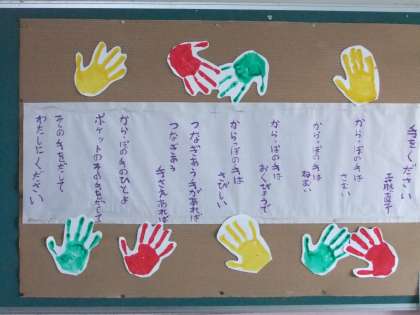 手をください
からっぽの手は
さむい
からっぽの手は
ねむい
からっぽの手は
おくびょうで
からっぽの手は
さびしい
つなぎあう手があれば
つなぎあう
手さえあれば
からっぽの手のひとよ
ポケットの中の手をだして
その手をだして
わたしにください